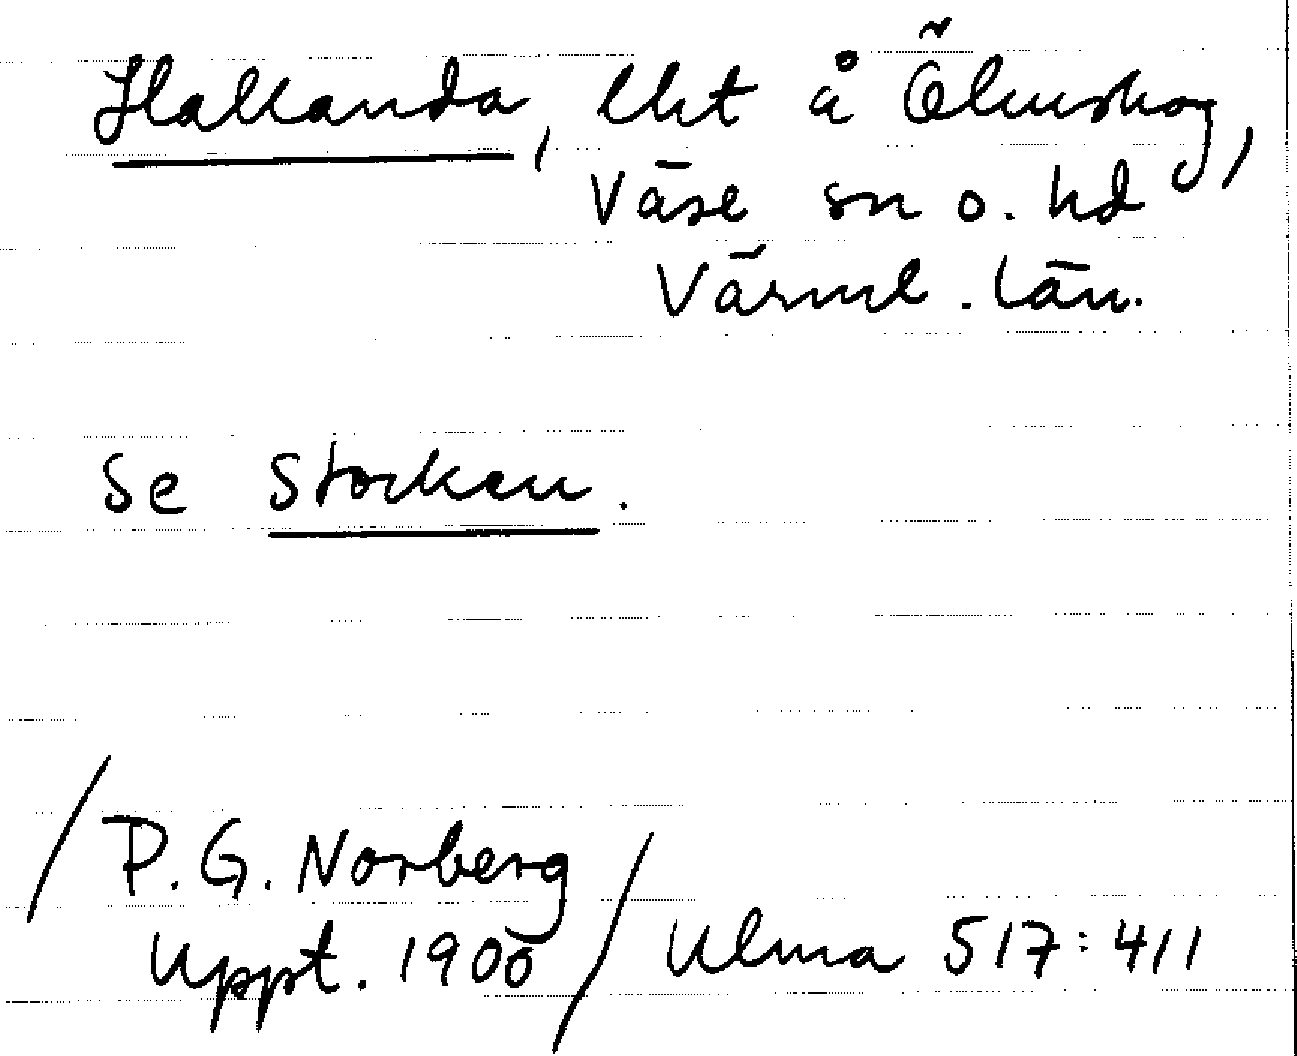 Hallanda, lht å Ölmskog,
Väse sn o. hd
Värml. län.
Se Stocken.
/P.G. Norberg
uppt. 1900/ Ulma 517:411